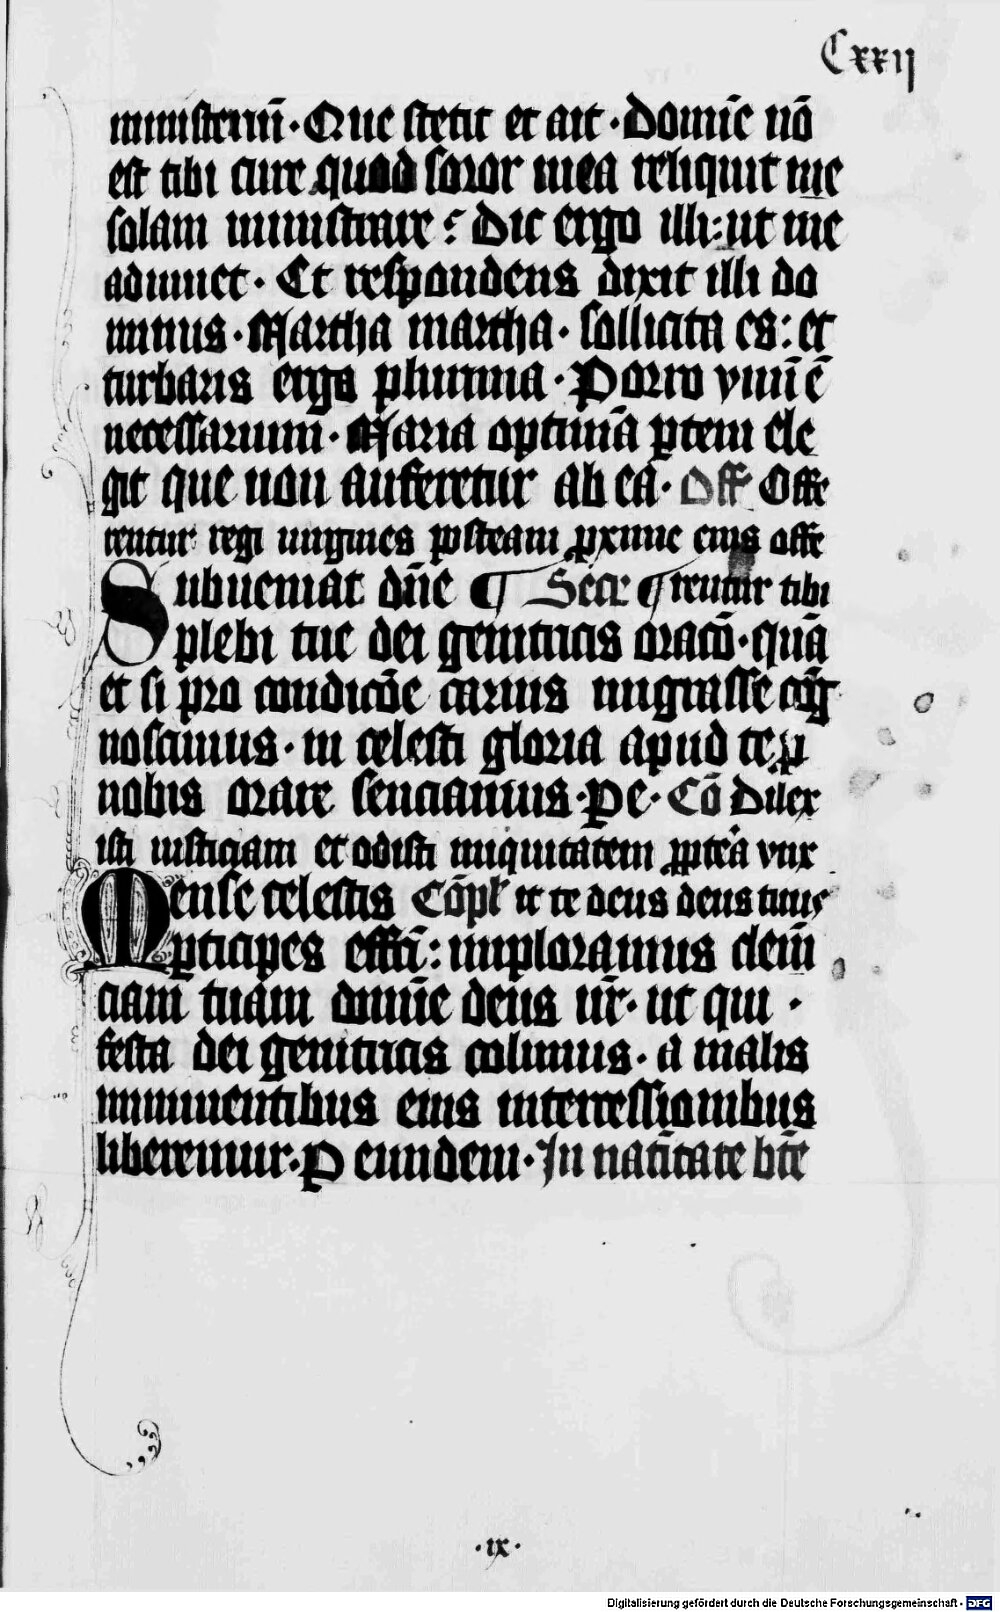 Cxxij
ministeriū · Que stetit et ait · Domīe nō
est tibi cure quod soror mea reliquit me
solam ministrare ? Dic ergo illi : ut me
adiuuet · Et respondens dixit illi do
minus · Martha martha · sollicita es : et
turbaris erga plurima · Porro vnū ē
necessarium · Maria optimā ꝑtem ele
git que non auferetur ab ea · Off Offe
rentur regi uirgines posteam ꝓxime eius offe
Subueniat dn̄e ¶ Secr ¶ rentur tibi
plebi tue dei genitricis oracō · quā
et si pro condicōe carnis migrasse cog
noscimus · in celesti gloria apud te ꝓ
nobis orare senciamus · Pe · Cō Dilex
isti iusticiam et odisti iniquitatem ꝓpterea vnx
Mense celestis Cōpl it te deus deus tuus
ꝑticipes effcī : imploramus clem̄
ciam tuam domīe deus nr̄ · ut qui ·
festa dei genitricis colimus · a malis
imminentibus eius intercessionibus
liberemur · P eundem · In natītate btē
· ix ·
Digitalisierung gefördert durch die Deutsche Forschungsgemeinschaft - DFG